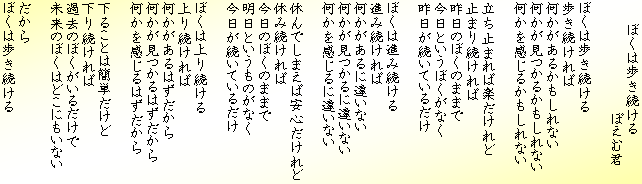 ぼくは歩き続ける
ぽえむ君
ぼくは歩き続ける
歩き続ければ
何かがあるかもしれない
何かが見つかるかもしれない
何かを感じるかもしれない
立ち止まれば楽だけれど
止まり続ければ
昨日のぼくのままで
今日というぼくがなく
昨日が続いているだけ
ぼくは進み続ける
進み続ければ
何かがあるに違いない
何かが見つかるに違いない
何かを感じるに違いない
休んでしまえば安心だけれど
休み続ければ
今日のぼくのままで
明日というものがなく
今日が続いているだけ
ぼくは上り続ける
上り続ければ
何かがあるはずだから
何かが見つかるはずだから
何かを感じるはずだから
下ることは簡単だけど
下り続ければ
過去のぼくがいるだけで
未来のぼくはどこにもいない
だから
ぼくは歩き続ける